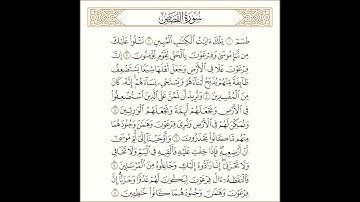 سُورَةُ القَصَصِ
طسٓمٓ ١ تِلْكَ ءَايَٰتُ ٱلْكِتَٰبِ ٱلْمُبِينِ ٢ نَتْلُوا۟ عَلَيْكَ
مِن نَّبَإِ مُوسَىٰ وَفِرْعَوْنَ بِٱلْحَقِّ لِقَوْمٍ يُؤْمِنُونَ ٣ إِنَّ
فِرْعَوْنَ عَلَا فِى ٱلْأَرْضِ وَجَعَلَ أَهْلَهَا شِيَعًا يَسْتَضْعِفُ
طَآئِفَةً مِّنْهُمْ يُذَبِّحُ أَبْنَآءَهُمْ وَيَسْتَحْىِۦ نِسَآءَهُمْ إِنَّهُۥ كَانَ
مِنَ ٱلْمُفْسِدِينَ ٤ وَنُرِيدُ أَن نَّمُنَّ عَلَى ٱلَّذِينَ ٱسْتُضْعِفُوا۟
فِى ٱلْأَرْضِ وَنَجْعَلَهُمْ أَئِمَّةً وَنَجْعَلَهُمُ ٱلْوَٰرِثِينَ ٥
وَنُمَكِّنَ لَهُمْ فِى ٱلْأَرْضِ وَنُرِىَ فِرْعَوْنَ وَهَٰمَٰنَ وَجُنُودَهُمَا
مِنْهُم مَّا كَانُوا۟ يَحْذَرُونَ ٦ وَأَوْحَيْنَآ إِلَىٰٓ أُمِّ مُوسَىٰٓ
أَنْ أَرْضِعِيهِ فَإِذَا خِفْتِ عَلَيْهِ فَأَلْقِيهِ فِى ٱلْيَمِّ وَلَا تَخَافِى
وَلَا تَحْزَنِىٓ إِنَّا رَآدُّوهُ إِلَيْكِ وَجَاعِلُوهُ مِنَ ٱلْمُرْسَلِينَ ٧
فَٱلْتَقَطَهُۥٓ ءَالُ فِرْعَوْنَ لِيَكُونَ لَهُمْ عَدُوًّا وَحَزَنًا إِنَّ
فِرْعَوْنَ وَهَٰمَٰنَ وَجُنُودَهُمَا كَانُوا۟ خَٰطِـِٔينَ ٨